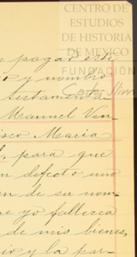 CENTRO DE
ESTUDIOS
DE HISTORIA
DE MEXICO
FUNDACIÓN
Carlos Slim
pagadoch
y nombro
testamenta
Manuel Ven
isco Maria
l, para que
n defecto uno
en de su nom
e yo fallezca
de mis bienes,
io y la par